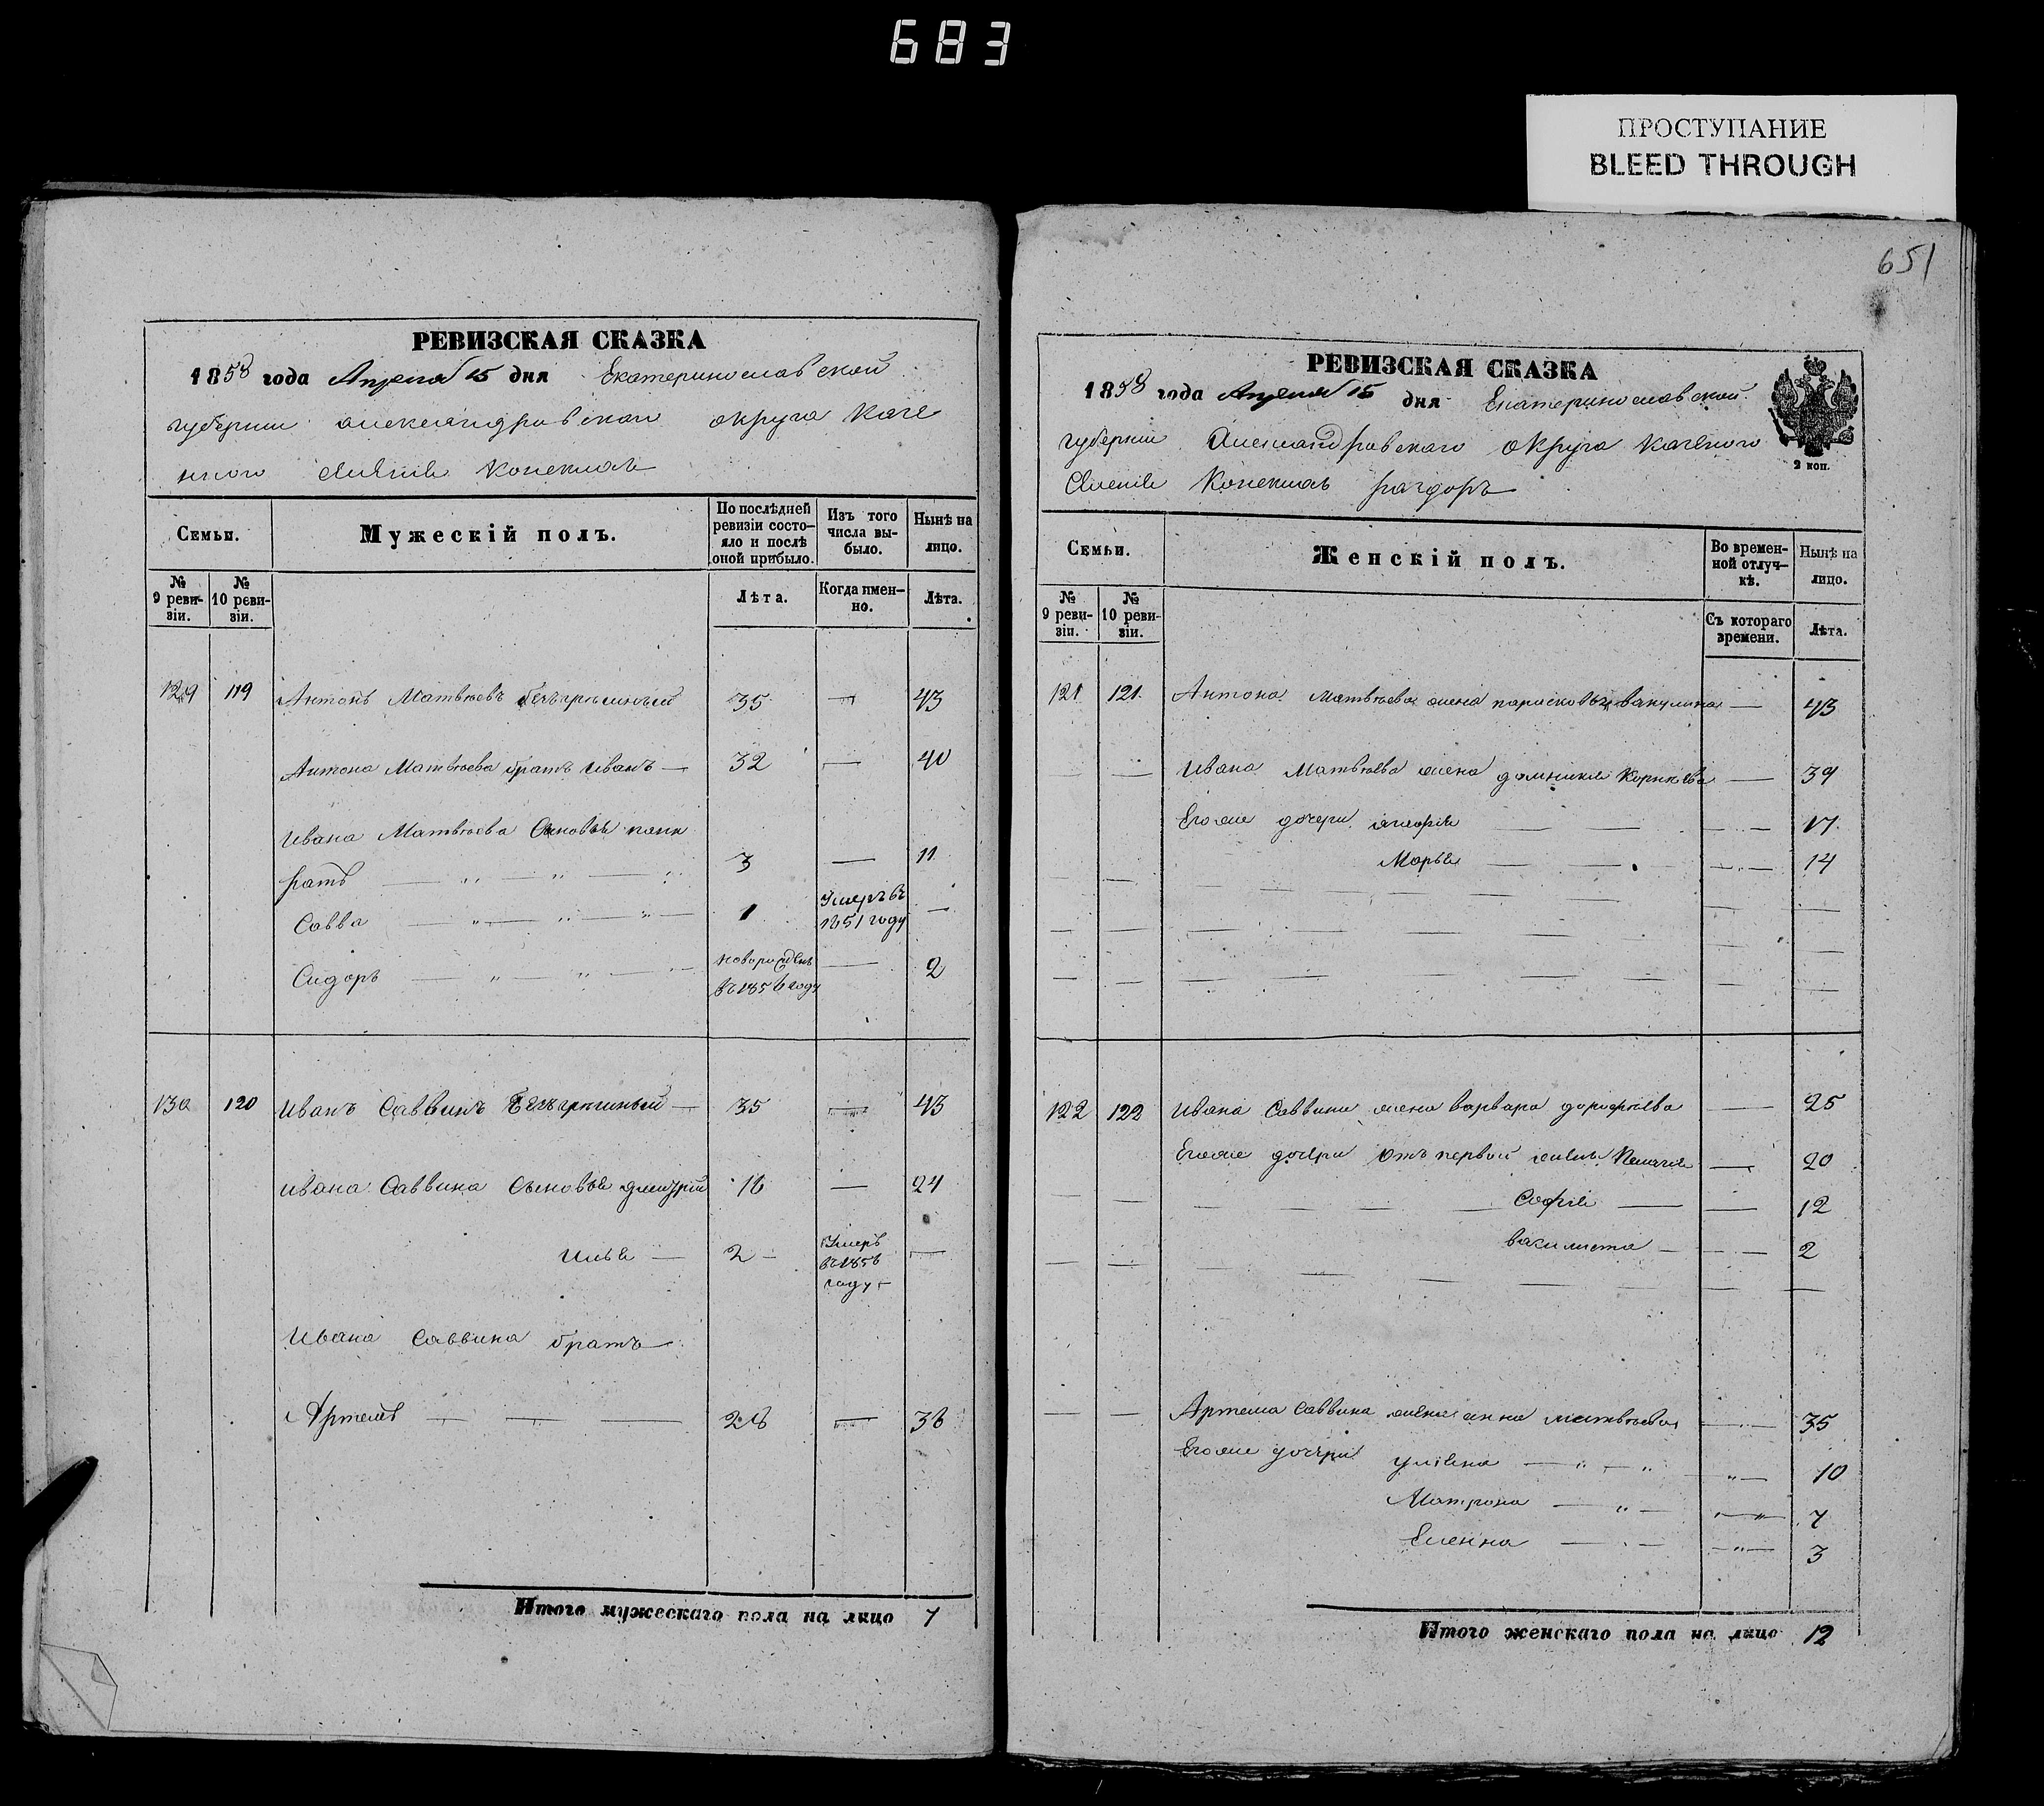 683
ПРОСТУПАНИЕ
BLEED THROUGH
651
РЕВИЗСКАЯ СКАЗКА
1858 года Апреля 15 дня Екатеринославской
губернии александровскаго округа казе
нного
По послѣдней ревизіи состо-яло и послѣ оной прибыло.
Изъ того числа вы-было.
Нынѣ на лицо.
Семьи.
Мужескій полъ.
№ 9 реви-зіи.
№ 10 реви-зіи.
Лѣта.
Когда имен-но.
Лѣта.
129 119 Антонъ Матвѣевъ 35 — 43
Антона Матвѣева братъ Иванъ — 32 — 40
Ивана Матвѣева Сыновья панк
ратъ 3 — 11
Савва 1 Умеръ въ 1851 году —
Сидоръ новорожденъ въ 1856 году — 2
130 120 Иванъ Саввинъ 35 — 43
Ивана Саввина Сыновья дмитрій 16 — 24
Илья — 2 — Умеръ въ 1856 году —
Ивана Саввина братъ
Артемъ — 28 — 36
Итого мужескаго пола на лицо 7
РЕВИЗСКАЯ СКАЗКА
1858 года Апреля 15 дня Екатеринославской
губернии Александровскаго округа казеного
2 коп.
Семьи.
Женскій полъ.
Во времен-ной отлуч-кѣ.
Нынѣ на лицо.
№ 9 реви-зіи.
№ 10 реви-зіи.
Съ котораго времени.
Лѣта.
121 121 Антона Матвѣева жена вакулина — 43
Ивана Матвѣева жена домникия — 39
Егоже дочери 17
Марья 14
122 122 Ивана Саввина жена варвара дорофѣева — 25
Егоже дочери отъ первой жены Пелагия — 20
Софія — 12
2
Артема Саввина жена анна матвѣева 35
Егоже дочери улиена 10
Матрона 7
Еленна 3
Итого женскаго пола на лицо 12